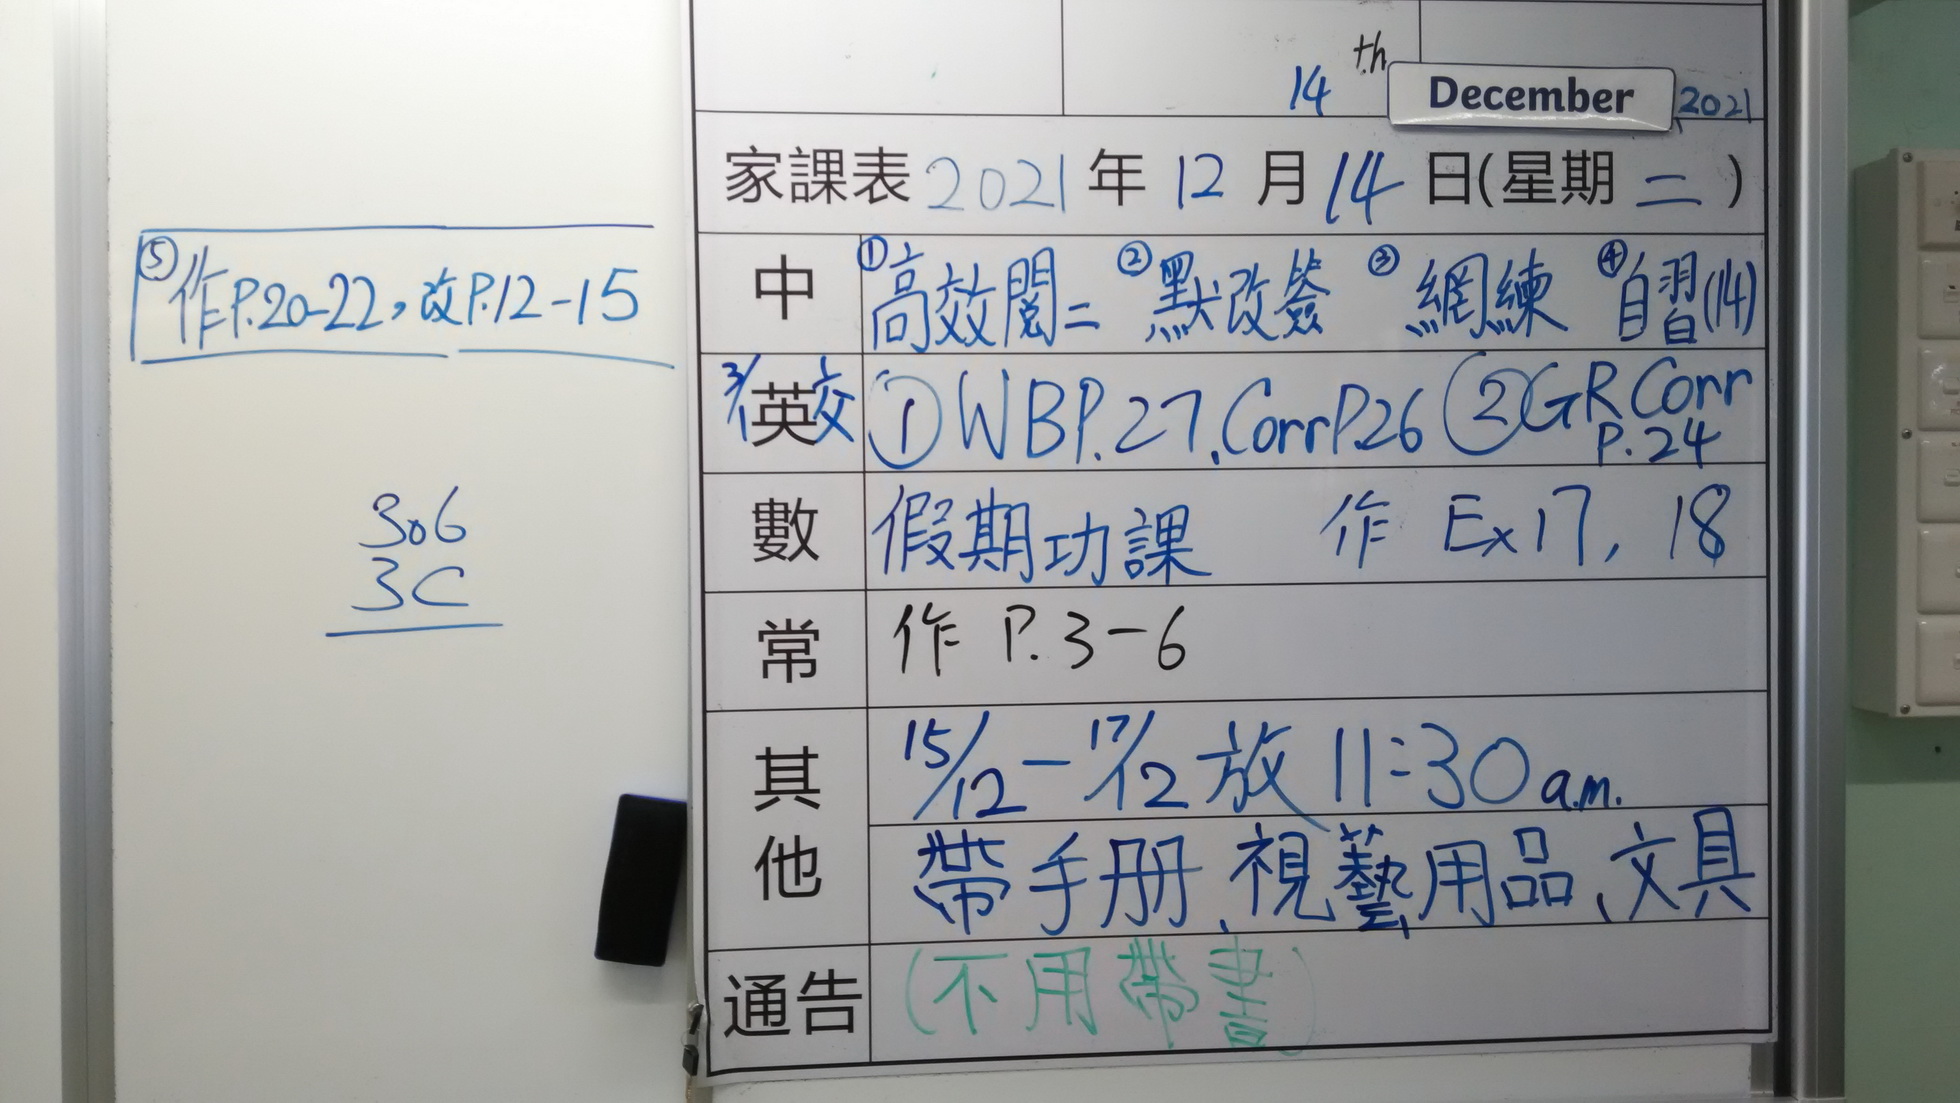 14th December 2021
家課表 2021 年 12 月 14 日(星期 二)
中 ①高效閱二 ②默改簽 ③網練 ④自習(14)
⑤作P.20-22，改P.12-15
3/1 英 交 ①WBP.27、CorrP.26 ②GR Corr P.24
數 假期功課 作 Ex17, 18
常 作 P.3-6
其他 15/12-17/12 放 11:30 a.m.
帶手册、視藝用品、文具
通告 (不用帶書)
306
3C